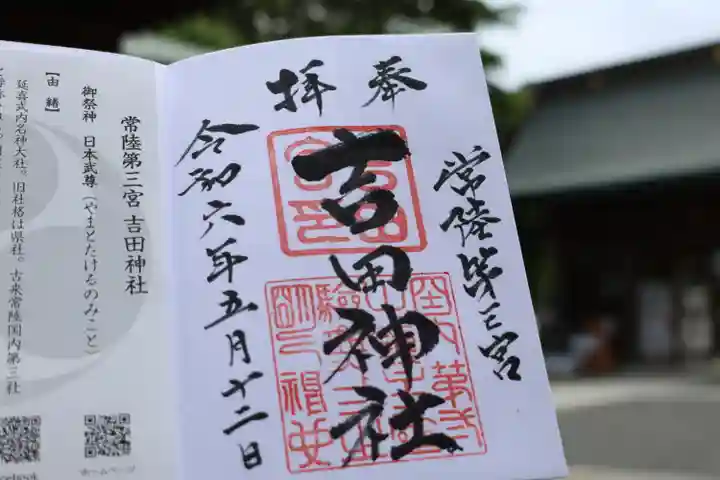 奉拝
常陸第三宮
吉田神社
令和六年五月十二日
常陸第三宮 吉田神社
御祭神 日本武尊(やまとたけるのみこと)
【由緒】
延喜式内名神大社。旧社格は県社。古来常陸国内第三社
ホームページ